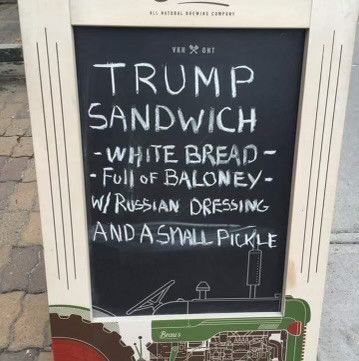 ALL NATURAL BREWING COMPANY
VKH ONT
TRUMP
SANDWICH
- WHITE BREAD -
- FULL OF BALONEY -
W/ RUSSIAN DRESSING
AND A SMALL PICKLE
Beau's